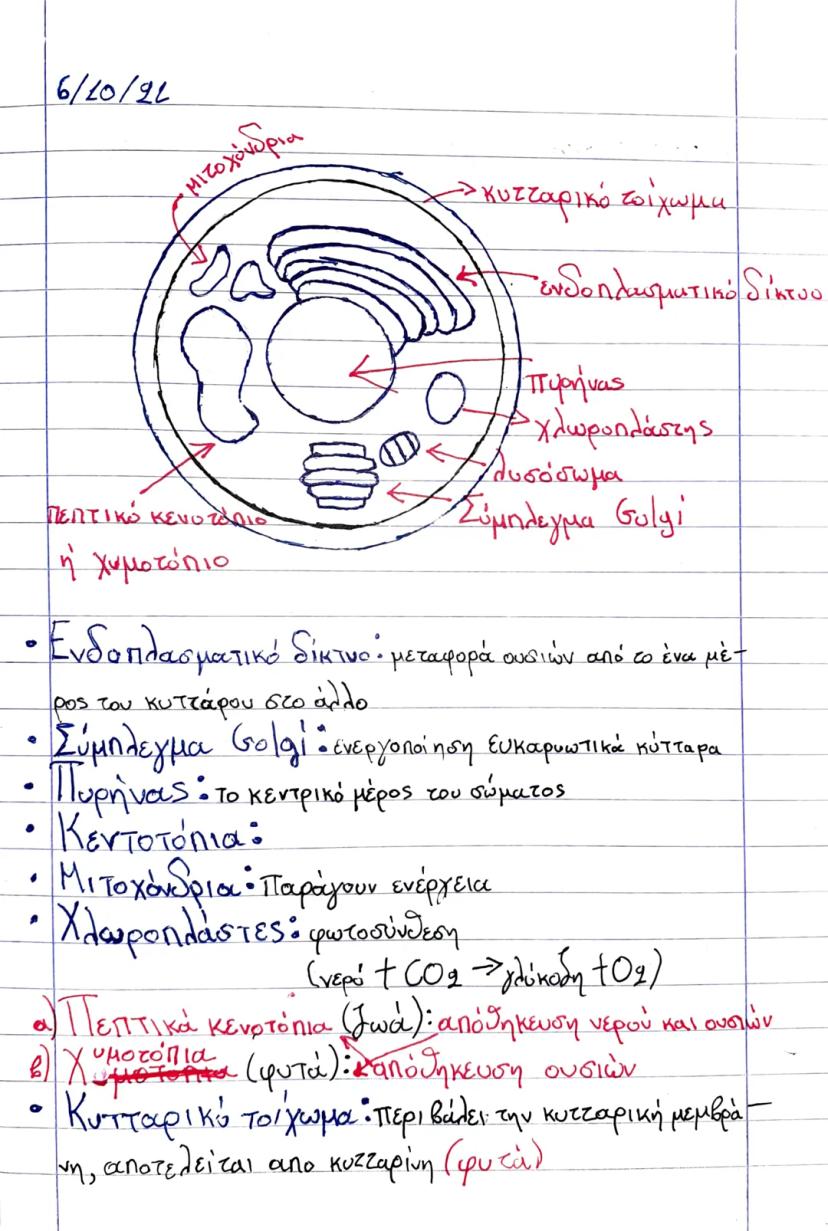 6/10/21
μιτοχόνδρια
κυτταρικό τοίχωμα
ενδοπλασματικό δίκτυο
πυρήνας
χλωροπλάστης
λυσόσωμα
Σύμπλεγμα Golgi
πεπτικό κενοτόπιο
ή χυμοτόπιο
• Ενδοπλασματικό δίκτυο: μεταφορά ουσιών από το ένα μέ-
ρος του κυττάρου στο άλλο
• Σύμπλεγμα Golgi: ενεργοποίηση ευκαρυωτικά κύτταρα
• Πυρήνας: το κεντρικό μέρος του σώματος
• Κεντοτόπια:
• Μιτοχόνδρια: Παράγουν ενέργεια
• Χλωροπλάστες: φωτοσύνθεση
(νερό + CO2 → γλύκοδη + O2)
α) Πεπτικά κενοτόπια (ζωά): απόθηκευση νερού και ουσιών
β) Χυμοτόπια (φυτά): απόθηκευση ουσιών
• Κυτταρικό τοίχωμα: περιβάλει την κυτταρική μεμβρά-
νη, αποτελείται απο κυτταρίνη (φυτά)